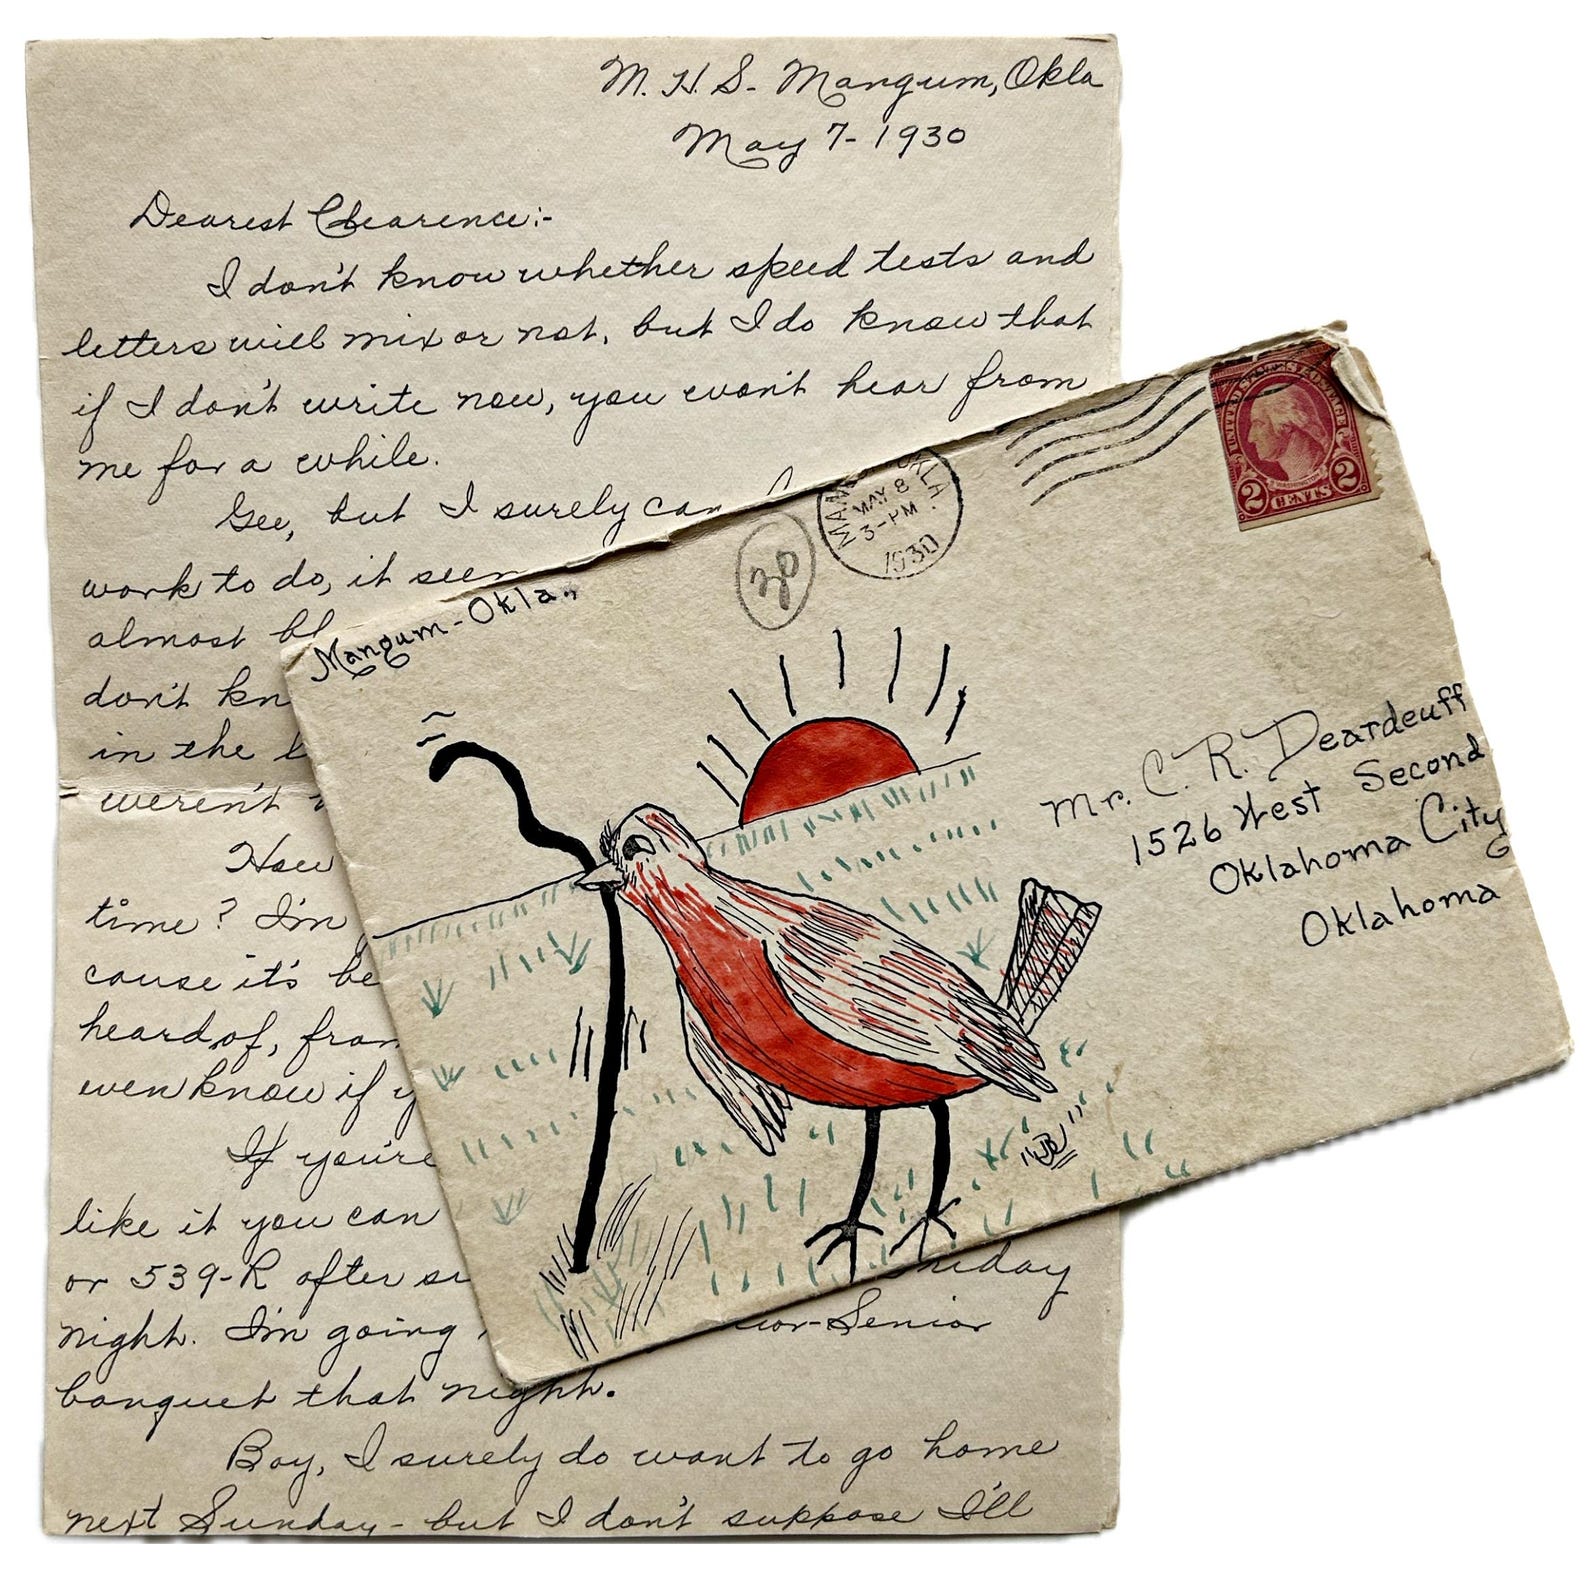 M. H. S. Mangum, Okla
May 7- 1930
Dearest Clearence:-
I don't know whether speed tests and
letters will mix or not, but I do know that
if I don't write now, you won't hear from
me for a while.
Gee, but I surely can
work to do, it seem
almost bl
don't kn
in the l
weren't
How
time? I'm
cause it's be
heard of, from
even know if y
If you're
like it you can
or 539-R after su
Sunday
night. I'm going
ior-Senior
banquet that night.
Boy, I surely do want to go home
next Sunday - but I don't suppose I'll
Mangum-Okla.
30
MANGUM OKLA.
MAY 8
3-PM
1930
UNITED STATES POSTAGE
WASHINGTON
2 CENTS 2
Mr. C. R. Deardeuff
1526 West Second
Oklahoma City
Oklahoma